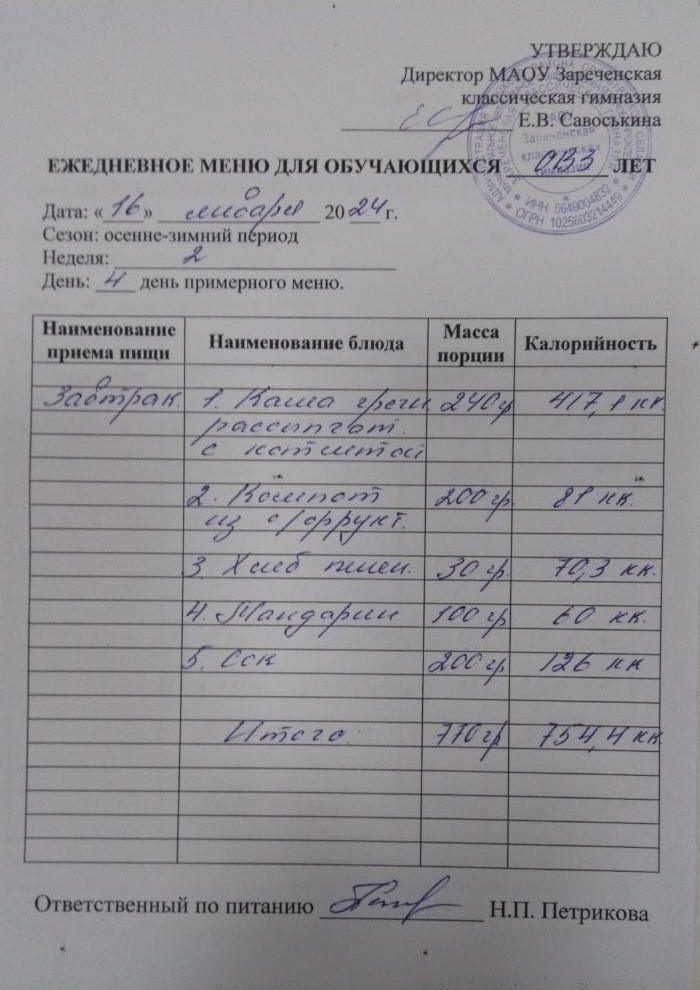 УТВЕРЖДАЮ
Директор МАОУ Зареченская
классическая гимназия
Е.В. Савоськина
ЕЖЕДНЕВНОЕ МЕНЮ ДЛЯ ОБУЧАЮЩИХСЯ ОВЗ ЛЕТ
Дата: «16» января 2024 г.
Сезон: осенне-зимний период
Неделя: 2
День: 4 день примерного меню.
Наименование приема пищи Наименование блюда Масса порции Калорийность
Завтрак. 1. Каша гречн. 240 гр 417,1 кк.
рассыпчат.
с котлетой
2. Компот 200 гр. 81 кк.
из с/фрукт.
3. Хлеб пшен. 30 гр. 70,3 кк.
4. Мандарин 100 гр 60 кк.
5. Сок 200 гр. 126 кк
Итого: 770 гр 754,4 кк
Ответственный по питанию Н.П. Петрикова
ИНН 5649004832
ОГРН 1025603214449
Зареченская
классическая
гимназия